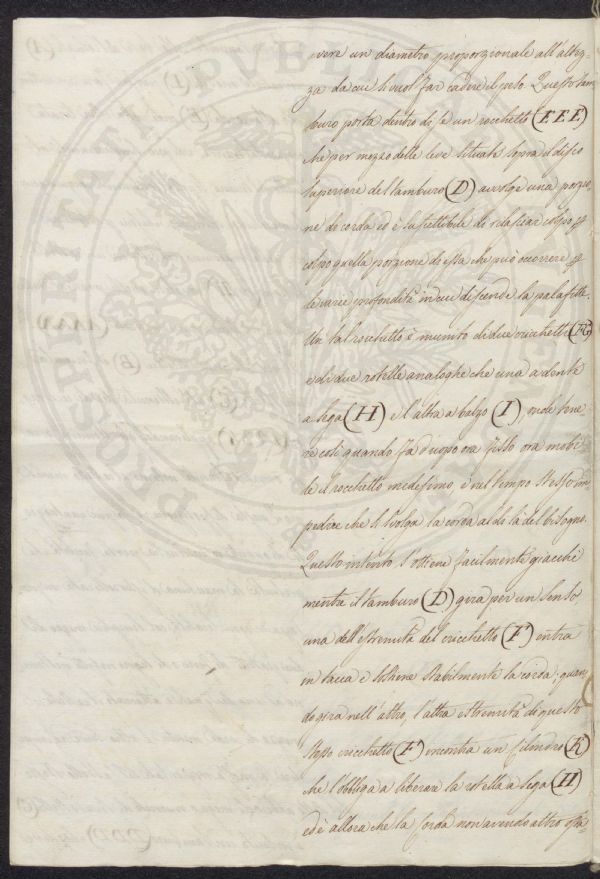 vere un diametro proporzionale all'altez-
za da cui si vuol far cadere il peso. Questo tam-
buro porta dentro di se un rocchetto (E.E.E.)
che per mezzo delle leve situate sopra il disco
superiore del tamburo (D) avvolge una porzio-
ne di corda ed è suscettibile di rilasciar colpo p
colpo quella porzione di essa che può occorrere p
le varie profondità in cui discende la palafitta.
Un tal rocchetto è munito di due cricchetti (FG)
e di due rotelle analoghe che una a dente
a sega (H) e l'altra a balzo (I), onde tene-
re così quando fa d'uopo ora fisso ora mobi-
le il rocchetto medesimo e nel tempo stesso im-
pedire che si svolga la corda al di là del bisogno.
Questo intento s'ottiene facilmente giacchè
mentre il tamburo (D) gira per un senso
una dell'estremità del cricchetto (F) entra
in tacca e sostiene stabilmente la corda; quan-
do gira nell'altro, l'altra estremità di questo
stesso cricchetto (F) incontra un cilindro (K)
che l'obbliga a liberare la rotella a sega (H)
ed è allora che la corda non avendo altro osta-